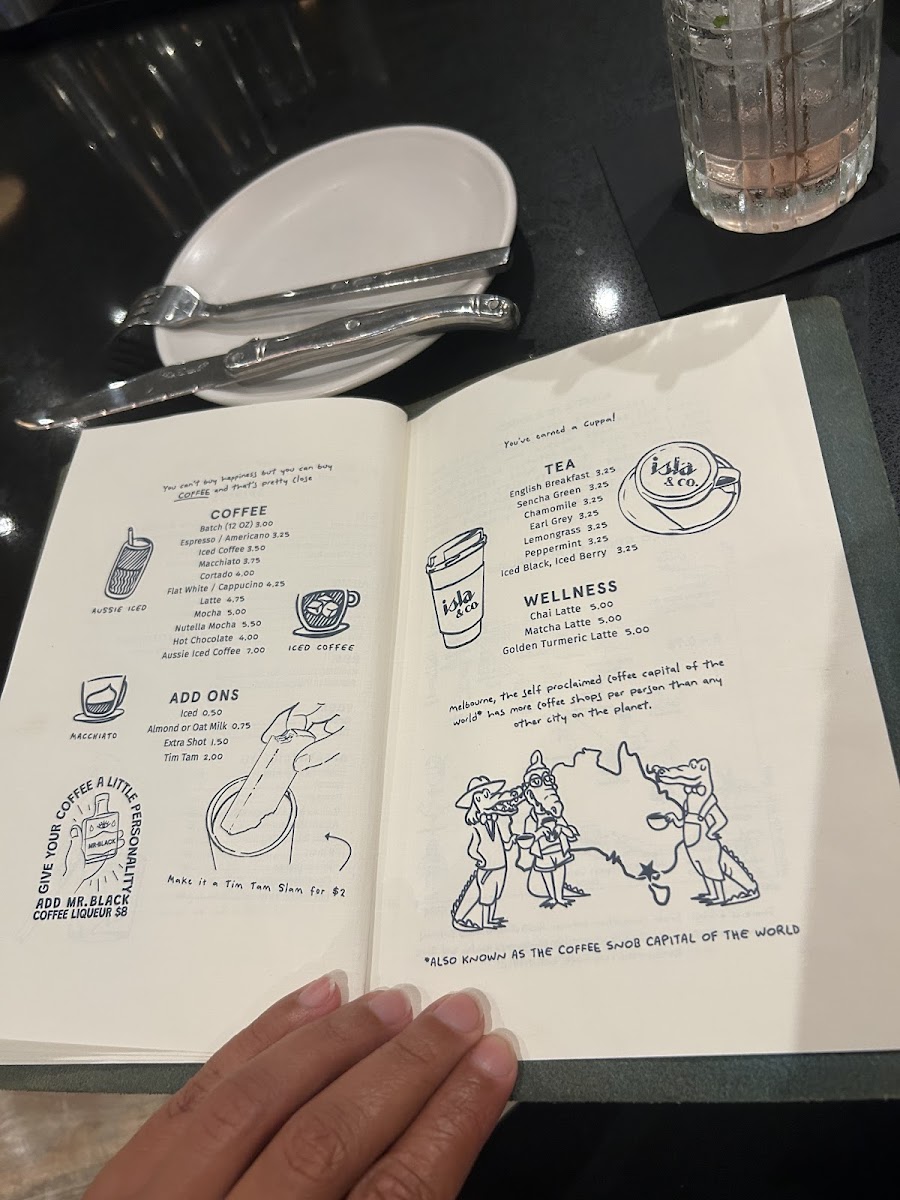 You can't buy happiness but you can buy
COFFEE and that's pretty close
COFFEE
Batch (12 OZ) 3.00
Espresso / Americano 3.25
Iced Coffee 3.50
Macchiato 3.75
Cortado 4.00
Flat White / Cappucino 4.25
Latte 4.75
Mocha 5.00
Nutella Mocha 5.50
Hot Chocolate 4.00
Aussie Iced Coffee 7.00
AUSSIE ICED
ICED COFFEE
MACCHIATO
ADD ONS
Iced 0.50
Almond or Oat Milk 0.75
Extra Shot 1.50
Tim Tam 2.00
GIVE YOUR COFFEE A LITTLE PERSONALITY
MR.BLACK
ADD MR.BLACK
COFFEE LIQUEUR $8
Make it a Tim Tam Slam for $2
You've earned a cuppa!
TEA
English Breakfast 3.25
Sencha Green 3.25
Chamomile 3.25
Earl Grey 3.25
Lemongrass 3.25
Peppermint 3.25
Iced Black, Iced Berry 3.25
isla
& CO.
isla
& CO.
WELLNESS
Chai Latte 5.00
Matcha Latte 5.00
Golden Turmeric Latte 5.00
Melbourne, the self proclaimed coffee capital of the
world* has more coffee shops per person than any
other city on the planet.
*ALSO KNOWN AS THE COFFEE SNOB CAPITAL OF THE WORLD